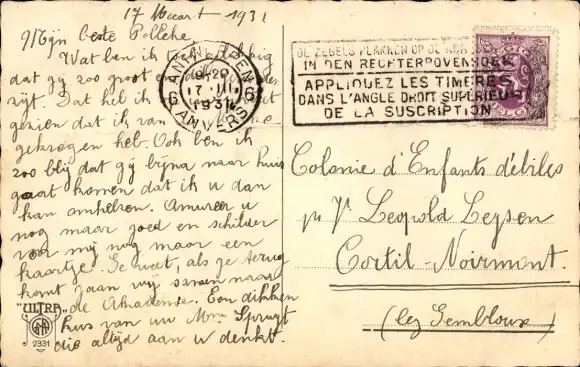 17 Maart 1931
Mijn beste Polleke
Wat ben ik
dat gij zoo groot
zijt. Dat heb ik
gezien dat ik van
gekregen heb. Ook ben ik
zoo blij dat gij bijna naar huis
gaat komen dat ik u dan
kan omhelzen. Amuseer u
nog maar goed en schilder
voor mij nog maar een
kaartje. Je weet, als ge terug
komt gaan wij samen naar
de Akademie. Een dikken
kus van uw Mme Spruyt
die altijd aan u denkt.
"ULTRA"
2331
ANTWERPEN
6 6
19-20
17 III
1931
ANVERS
DE ZEGELS PLAKKEN OP DE
IN DEN RECHTERBOVENHOEK
APPLIQUEZ LES TIMBRES
DANS L'ANGLE DROIT SUPERIEUR
DE LA SUSCRIPTION
Colonie d'Enfants débiles
Leopold Leysen
Cortil-Noirmont.
(lez Gembloux)